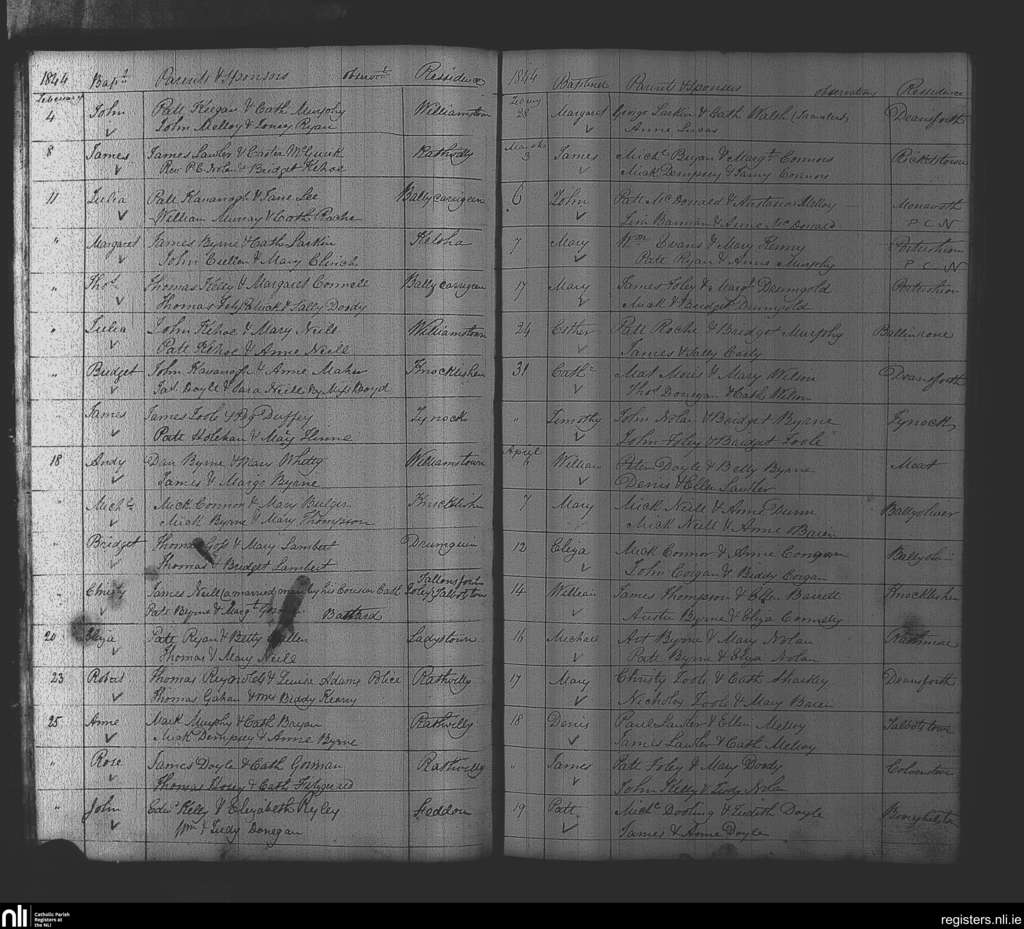 1844 Bapt. Parents & Sponsors observt. Residence
February
4 John Patt Keegan & Cath Murphy Williamstown
John Melloy & Honey Ryan
8 James James Lawler & Easter McGuirk Rathvilly
Revd P.C. Nolan & Bridget Kehoe
11 Julia Patt Kavanagh & Jane Lee Ballycarrigeen
William Murray & Cath Roche
" Margaret James Byrne & Cath Larkin Kelsha
John Cullen & Mary
" Thos. Thomas Kelly & Margaret Connell Ballycarrigeen
Thomas & Sally Doody
" Julia John Kehoe & Mary Neill Williamstown
Patt Kehoe & Anne Neill
" Bridget John Kavanagh & Anne Maher Knocklishen
Jas. Doyle & Sara Neill By Miss Boyd
James James Toole & Duffey Tynock
Patt Holehan & Mary
18 Andy Dan Byrne & Mary Whitty Williamstown
James & Margt Byrne
" Michl. Mick Connor & Mary Bulger Knocklish
Mick Byrne & Mary Thompson
" Bridget Thomas & Mary Lambert Drumguin
Thomas & Bridget Lambert
" Christy James Neill (a married man) by his Cousin Cath Foley Talbotstown
Patt Byrne & Margt Bastard
20 Eliza Patt Ryan & Betty Ladystown
Thomas & Mary Neill
23 Robert Thomas Reynolds & Louisa Adams Police Rathvilly
Thomas Gahan & Mrs Biddy Keary
25 Anne Mark Murphy & Cath Bryan Rathvilly
Mick Dempsey & Anne Byrne
" Rose James Doyle & Cath Gorman Rathvilly
Thomas & Cath Fitzgerald
" John Edwd Kelly & Elizabeth Ryley Seddon
Wm & Judy Donegan
1844 Baptised Parents & Sponsors observations Residence
28 Margaret George Larkin & Cath Walsh (Travelers) Deansforth
Anne Lucas
March
3 James Michl. Bryan & Margt. Connors Ricketstown
Mick Dempsey & Connors
6 John Patt McDonald & Anstasia Melloy
Jim & Anne McDonald P C N
7 Mary Wm. Evans & Mary Kenny
Patt Ryan & Anne Murphy P C N
17 Mary James Foley & Margt. Drumgold
Mick & Bridget Drumgold
24 Esther Patt Roche & Bridget Murphy
James & Sally
31 Cathe. Mat & Mary Wilson Deansforth
Thos. Donegan & Cath Wilson
" Timothy John Nolan & Bridget Byrne Tynock
John Foley & Bridget Toole
April
William Peter Doyle & Betty Byrne
Denis & Ellen Lawler
7 Mary Mick Neill & Anne Dunn Ballyoliver
Mick Neill & Anne
12 Eliza Mick Connor & Anne Corgan
John Corgan & Biddy Corgan
14 William James Thompson & Barrett Knocklishen
Austin Byrne & Eliza Connelly
16 Michael Art Byrne & Mary Nolan
Patt Byrne & Eliza Nolan
17 Mary Christy Toole & Cath Sharkey Deansforth
Nicholas Toole & Mary
18 Denis Paul Lawler & Ellen Melloy Talbotstown
James Lawler & Cath Melloy
" James Patt Foley & Mary Doody
John Kelly & Judy Nolan
19 Patt Michl. Dooling & Judith Doyle
James & Anne Doyle
nli Catholic Parish
Registers at
the NLI
registers.nli.ie